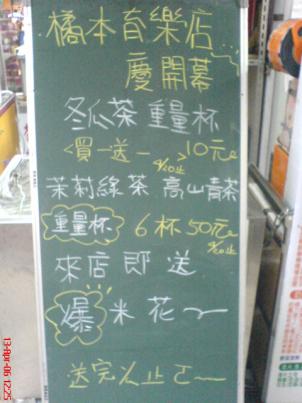 橘本育樂店
慶開幕
冬瓜茶 重量杯
<買一送一> 10元
4/20止
茉莉綠茶 高山青茶
重量杯 6杯50元
4/20止
來店即送
爆米花~
送完為止
13·Apr·06 12:25